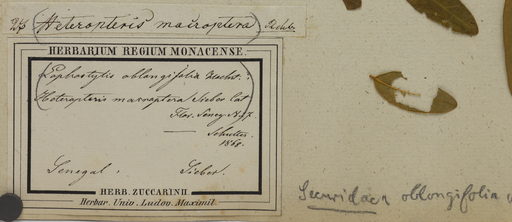 Heteropteris macroptera
HERBARIUM REGIUM MONACENSE.
Lophostylis oblongifolia Hochst.
Heteropteris macroptera Sieber
Flos. Seneg. N. 37.
Schultes.
1868.
Senegal. Sieber.
HERB. ZUCCARINII
Herbar. Univ. Ludov. Maximil.
Securidaca oblongifolia